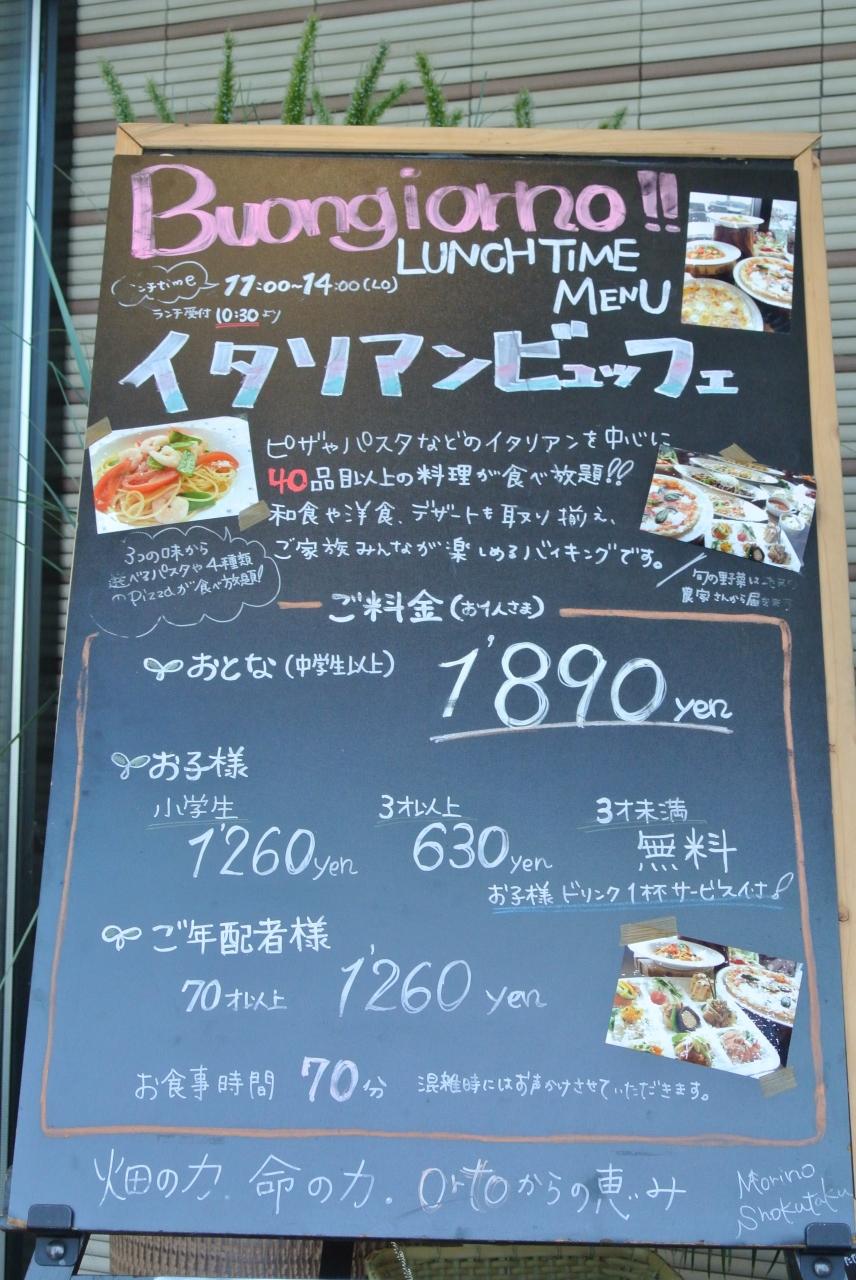 Buongiorno!!
LUNCH TIME
MENU
ンチtime 11:00~14:00(LO)
ランチ受付 10:30より
イタリアンビュッフェ
ピザやパスタなどのイタリアンを中心に
40品目以上の料理が食べ放題!!
和食や洋食、デザートも取り揃え、
ご家族みんなが楽しめるバイキングです。
3つの味から
選べるパスタや4種類
のpizzaが食べ放題!
旬の野菜は
農家さんから
ご料金(お1人さま)
おとな(中学生以上) 1'890yen
お子様
小学生 3才以上 3才未満
1'260yen 630yen 無料
お子様ドリンク1杯サービス付き
ご年配者様
70才以上 1'260 yen
お食事時間 70分 混雑時にはお声かけさせていただきます。
畑の力.命の力.ortoからの恵み
Morino
Shokutaku